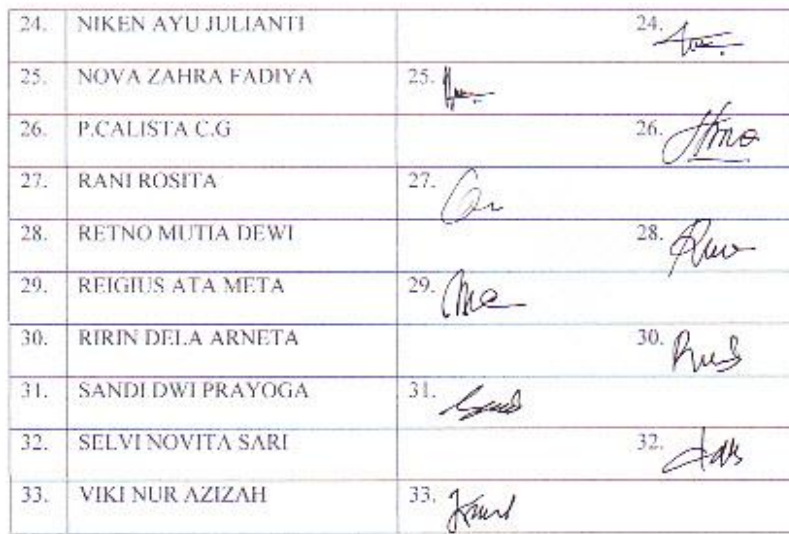 24. NIKEN AYU JULIANTI 24.
25. NOVA ZAHRA FADIYA 25.
26. P.CALISTA C.G 26.
27. RANI ROSITA 27.
28. RETNO MUTIA DEWI 28.
29. REIGIUS ATA META 29.
30. RIRIN DELA ARNETA 30.
31. SANDI DWI PRAYOGA 31.
32. SELVI NOVITA SARI 32.
33. VIKI NUR AZIZAH 33.